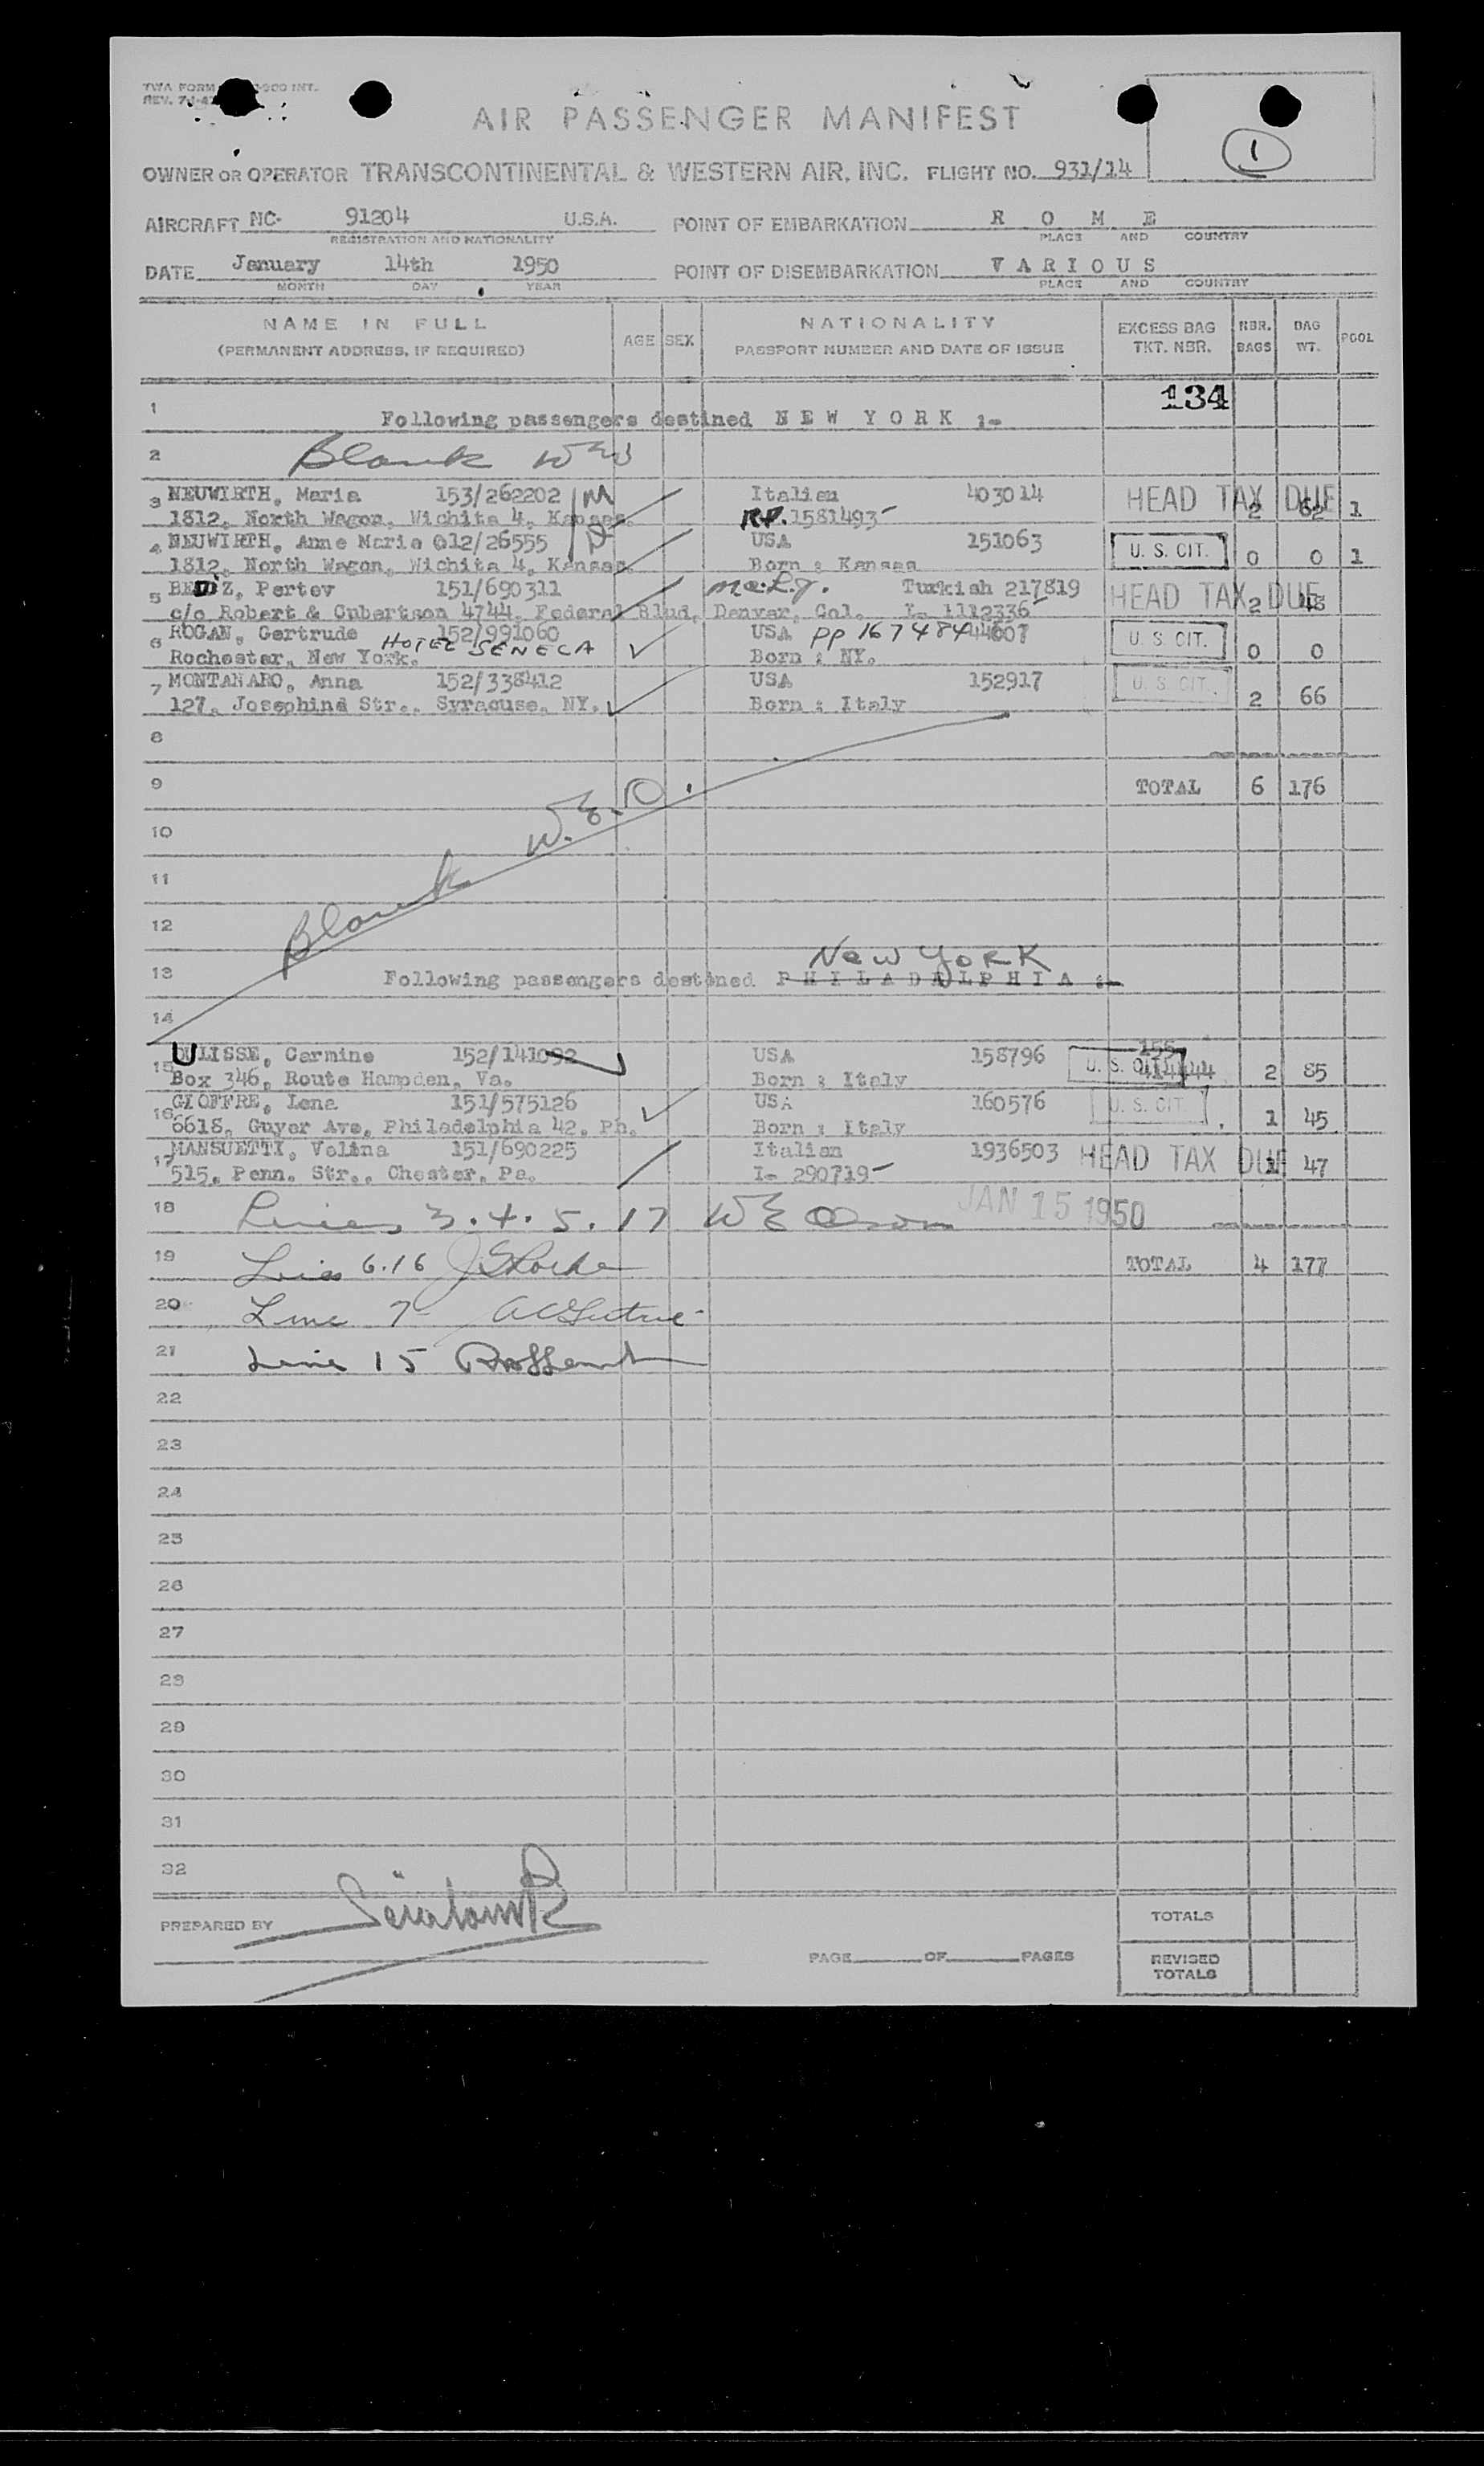 TWA FORM
REV.
AIR PASSENGER MANIFEST
1
OWNER OR OPERATOR TRANSCONTINENTAL & WESTERN AIR, INC. FLIGHT NO. 931/14
AIRCRAFT NC- 91204 U.S.A. POINT OF EMBARKATION R O M E
REGISTRATION AND NATIONALITY PLACE AND COUNTRY
DATE January 14th 1950 POINT OF DISEMBARKATION V A R I O U S
MONTH DAY YEAR PLACE AND COUNTRY
NAME IN FULL AGE SEX NATIONALITY EXCESS BAG NBR. BAG POOL
(PERMANENT ADDRESS, IF REQUIRED) PASSPORT NUMBER AND DATE OF ISSUE TKT. NBR. BAGS WT.
134
1 Following passengers destined N E W Y O R K :-
2 Blank
3 NEUWIRTH, Maria 153/262202 Italian 403014 HEAD TAX DUE 2 62 1
1812, North Wagon, Wichita 4, Kansas. 1581493-
4 NEUWIRTH, Anne Maria 012/26555 USA 151063 U. S. CIT. 0 0 1
1812, North Wagon, Wichita 4, Kansas. Born : Kansas
5 BEDIZ, Pertev 151/690311 Turkish 217819 HEAD TAX DUE 2 48
c/o Robert & Cubertson 4744, Federal Blud, Denver, Col. I- 1112336-
6 ROGAN, Gertrude 152/991060 USA PP 167484 U. S. CIT. 0 0
Rochester, New York. HOTEL SENECA Born : NY.
7 MONTANARO, Anna 152/338412 USA 152917 U. S. CIT. 2 66
127, Josephine Str., Syracuse, NY. Born : Italy
8
9 TOTAL 6 176
10
11
12
Blank W.E.O.
New York
13 Following passengers destined P H I L A D A L P H I A :-
14
15 ULISSE, Carmine 152/141092 USA 158796 U. S. CIT. 2 85
Box 346, Route Hampden, Va. Born : Italy
16 GIOFFRE, Lena 151/575126 USA 160576 U. S. CIT. 1 45
6618, Guyer Ave, Philadelphia 42, Ph. Born : Italy
17 MANSUETTI, Velina 151/690225 Italian 1936503 HEAD TAX DUE 1 47
515, Penn. Str., Chester, Pa. I- 290719-
18 Lines 3.4.5.17 W E Olson JAN 15 1950
19 Lines 6.16 TOTAL 4 177
20 Line 7
21 Line 15
22
23
24
25
26
27
28
29
30
31
32
PREPARED BY TOTALS
PAGE OF PAGES REVISED
TOTALS